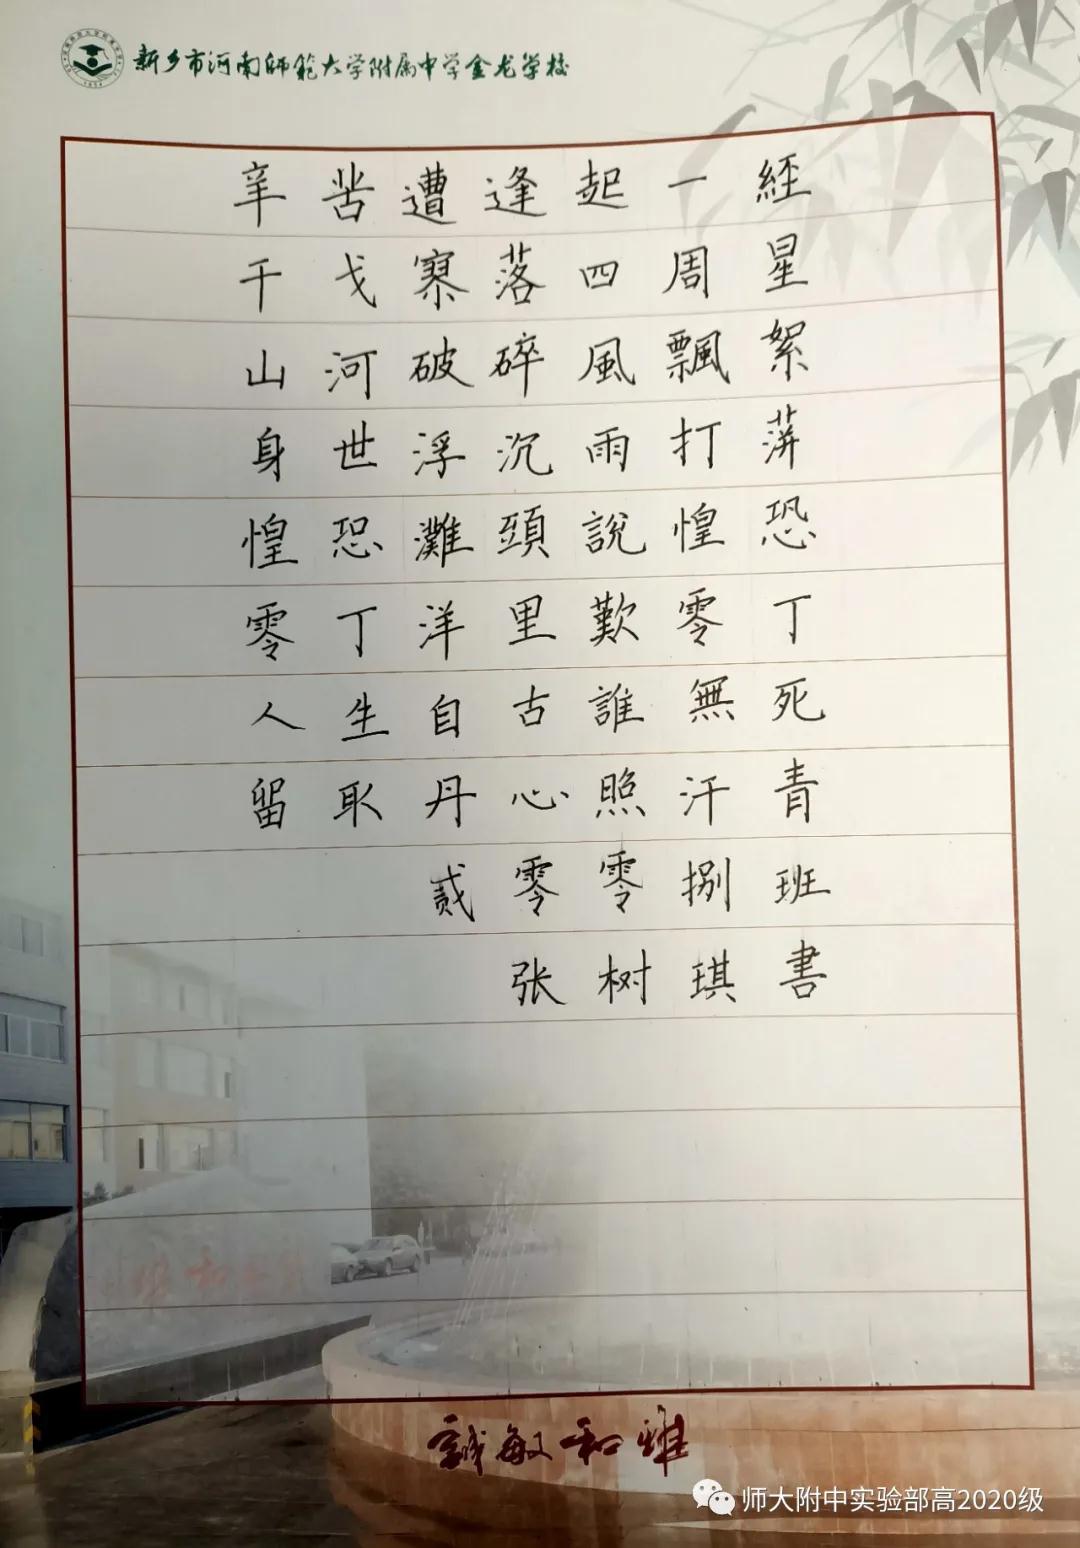 新乡市河南师范大学附属中学金龙学校
辛苦遭逢起一經
干戈寥落四周星
山河破碎風飄絮
身世浮沉雨打萍
惶恐灘頭說惶恐
零丁洋里歎零丁
人生自古誰無死
留取丹心照汗青
贰零零捌班
张树琪書
誠敏和雅
师大附中实验部高2020级